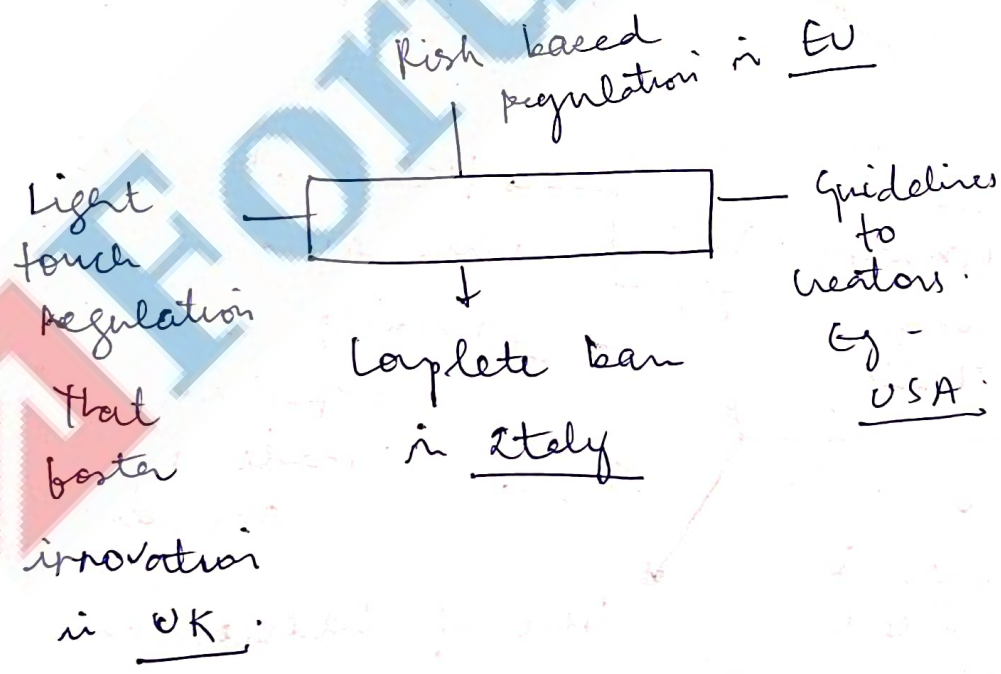 Risk based
regulation in EU
Light
touch
regulation
that
foster
innovation
in UK.
Guidelines
to
creators.
Eg -
USA.
Complete ban
in Italy